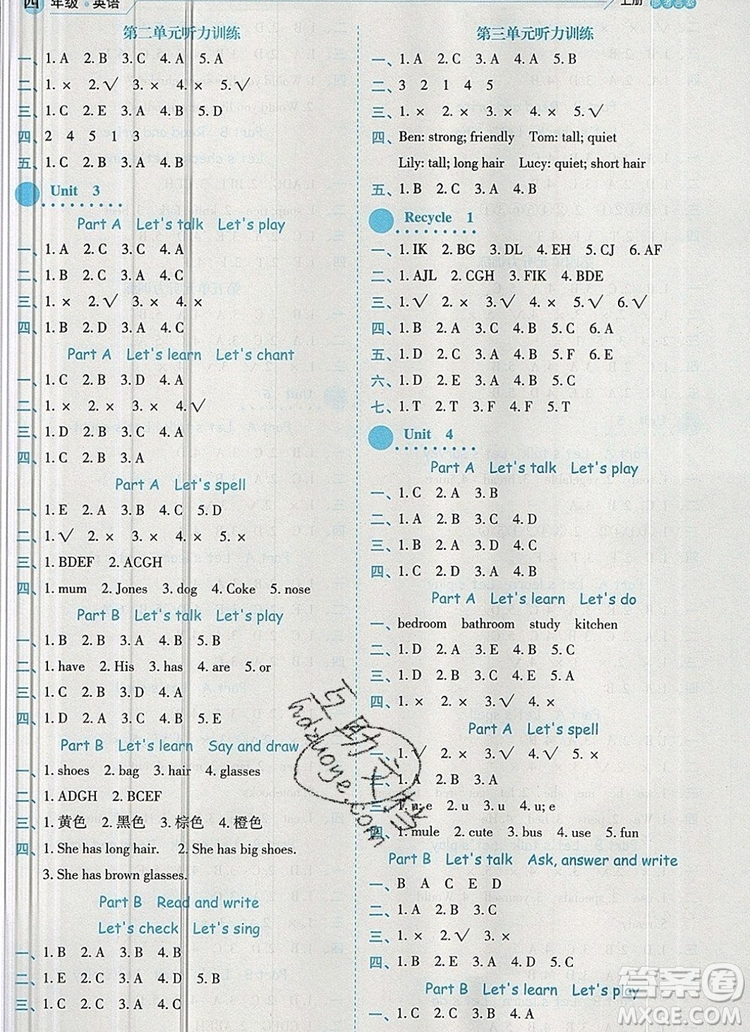 四 年级·英语
上册 参考答案
第二单元听力训练
一、1. A 2. B 3. C 4. A 5. A
二、1. × 2. √ 3. × 4. × 5. √
三、1. C 2. E 3. A 4. B 5. D
四、2 4 5 1 3
五、1. C 2. A 3. A 4. B
Unit 3
Part A Let's talk Let's play
一、1. A 2. C 3. C 4. A
二、1. B 2. C 3. A 4. A
三、1. × 2. √ 3. × 4. ×
四、1. B 2. D 3. A 4. C
Part A Let's learn Let's chant
一、1. C 2. B 3. D 4. A
二、1. × 2. × 3. × 4. √
三、1. D 2. D 3. A 4. B
四、1. C 2. B 3. D 4. A
Part A Let's spell
一、1. E 2. A 3. B 4. C 5. D
二、1. √ 2. × 3. × 4. × 5. ×
三、1. BDEF 2. ACGH
四、1. mum 2. Jones 3. dog 4. Coke 5. nose
Part B Let's talk Let's play
一、1. B 2. B 3. A 4. B 5. B
二、1. have 2. His 3. has 4. are 5. or
三、1. B 2. A 3. A 4. A 5. A
四、1. D 2. A 3. C 4. B 5. E
Part B Let's learn Say and draw
一、1. shoes 2. bag 3. hair 4. glasses
二、1. ADGH 2. BCEF
三、1. 黄色 2. 黑色 3. 棕色 4. 橙色
四、1. She has long hair. 2. She has big shoes.
3. She has brown glasses.
Part B Read and write
Let's check Let's sing
一、1. B 2. A 3. A 4. B 5. B
二、1. E 2. C 3. D 4. A 5. B
三、1. C 2. A 3. C 4. A 5. C
第三单元听力训练
一、1. A 2. B 3. A 4. C 5. C
二、3 2 1 4 5
三、1. × 2. × 3. × 4. √ 5. √
四、Ben: strong; friendly Tom: tall; quiet
Lily: tall; long hair Lucy: quiet; short hair
五、1. B 2. A 3. A 4. B 5. B
Recycle 1
一、1. IK 2. BG 3. DL 4. EH 5. CJ 6. AF
二、1. AJL 2. CGH 3. FIK 4. BDE
三、1. √ 2. × 3. √ 4. × 5. √ 6. √
四、1. B 2. A 3. C 4. B 5. C 6. A
五、1. D 2. F 3. A 4. B 5. C 6. E
六、1. D 2. C 3. E 4. A 5. B
七、1. T 2. T 3. F 4. F 5. T
Unit 4
Part A Let's talk Let's play
一、1. C 2. A 3. B
二、1. A 2. C 3. C 4. D
三、1. C 2. D 3. B 4. A
四、1. C 2. A 3. B
Part A Let's learn Let's do
一、bedroom bathroom study kitchen
二、1. D 2. A 3. B 4. C
三、1. B 2. D 3. A 4. C 5. A
四、1. × 2. √ 3. √ 4. ×
Part A Let's spell
一、1. √ 2. × 3. √ 4. √ 5. ×
三、1. u; e 2. u 3. u 4. u; e
四、1. mule 2. cute 3. bus 4. use 5. fun
Part B Let's talk Ask, answer and write
一、B A C E D
二、1. C 2. A 3. B 4. A 5. A
三、1. √ 2. × 3. √ 4. × 5. ×
四、1. B 2. A 3. B 4. A 5. C
Part B Let's learn Let's play
一、1. D 2. C 3. A 4. B
hdzuoye.com
答案圈
MXQE.COM